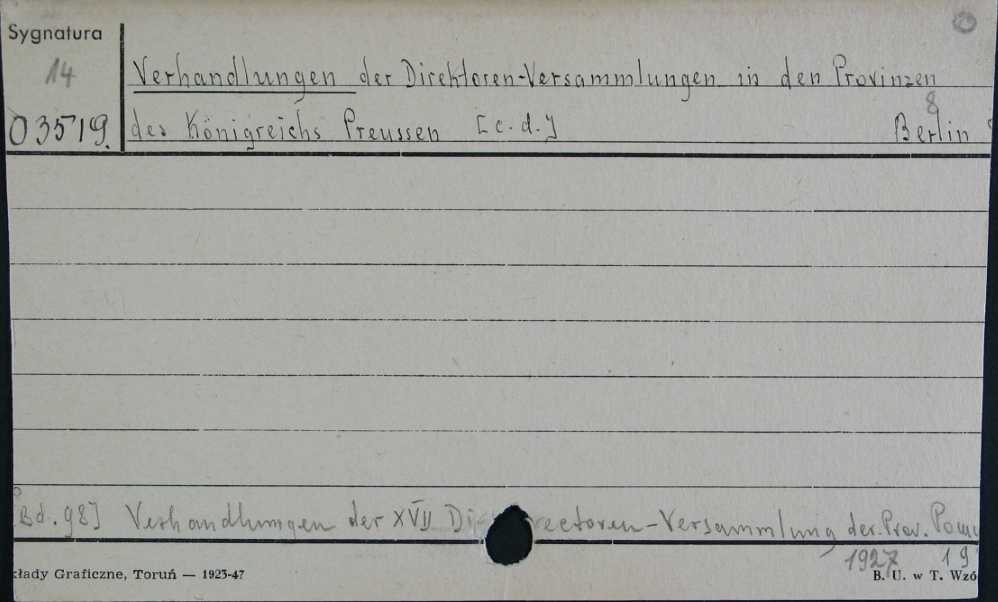 Sygnatura
14
Verhandlungen der Direktoren-Versammlungen in den Provinzen
8
03519. des Königreichs Preussen [c.d.] Berlin
Bd. 98] Verhandlungen der XVII Directoren-Versammlung der Prov. Pom
1927 19
kłady Graficzne, Toruń — 1923-47 B. U. w T. Wzó